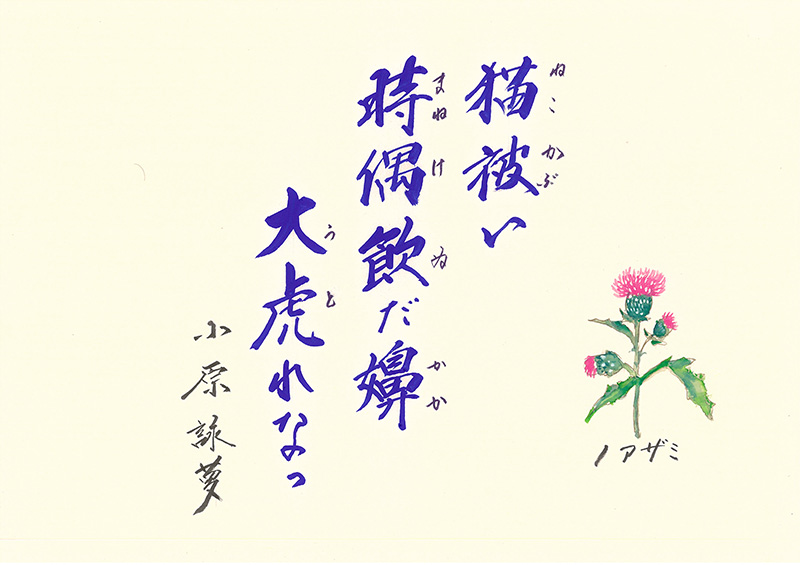 猫被い
ねこ かぶ
時偶飲だ嬶
まね け ゐ かか
大虎れなっ
うと
小原詠夢
ノアザミ